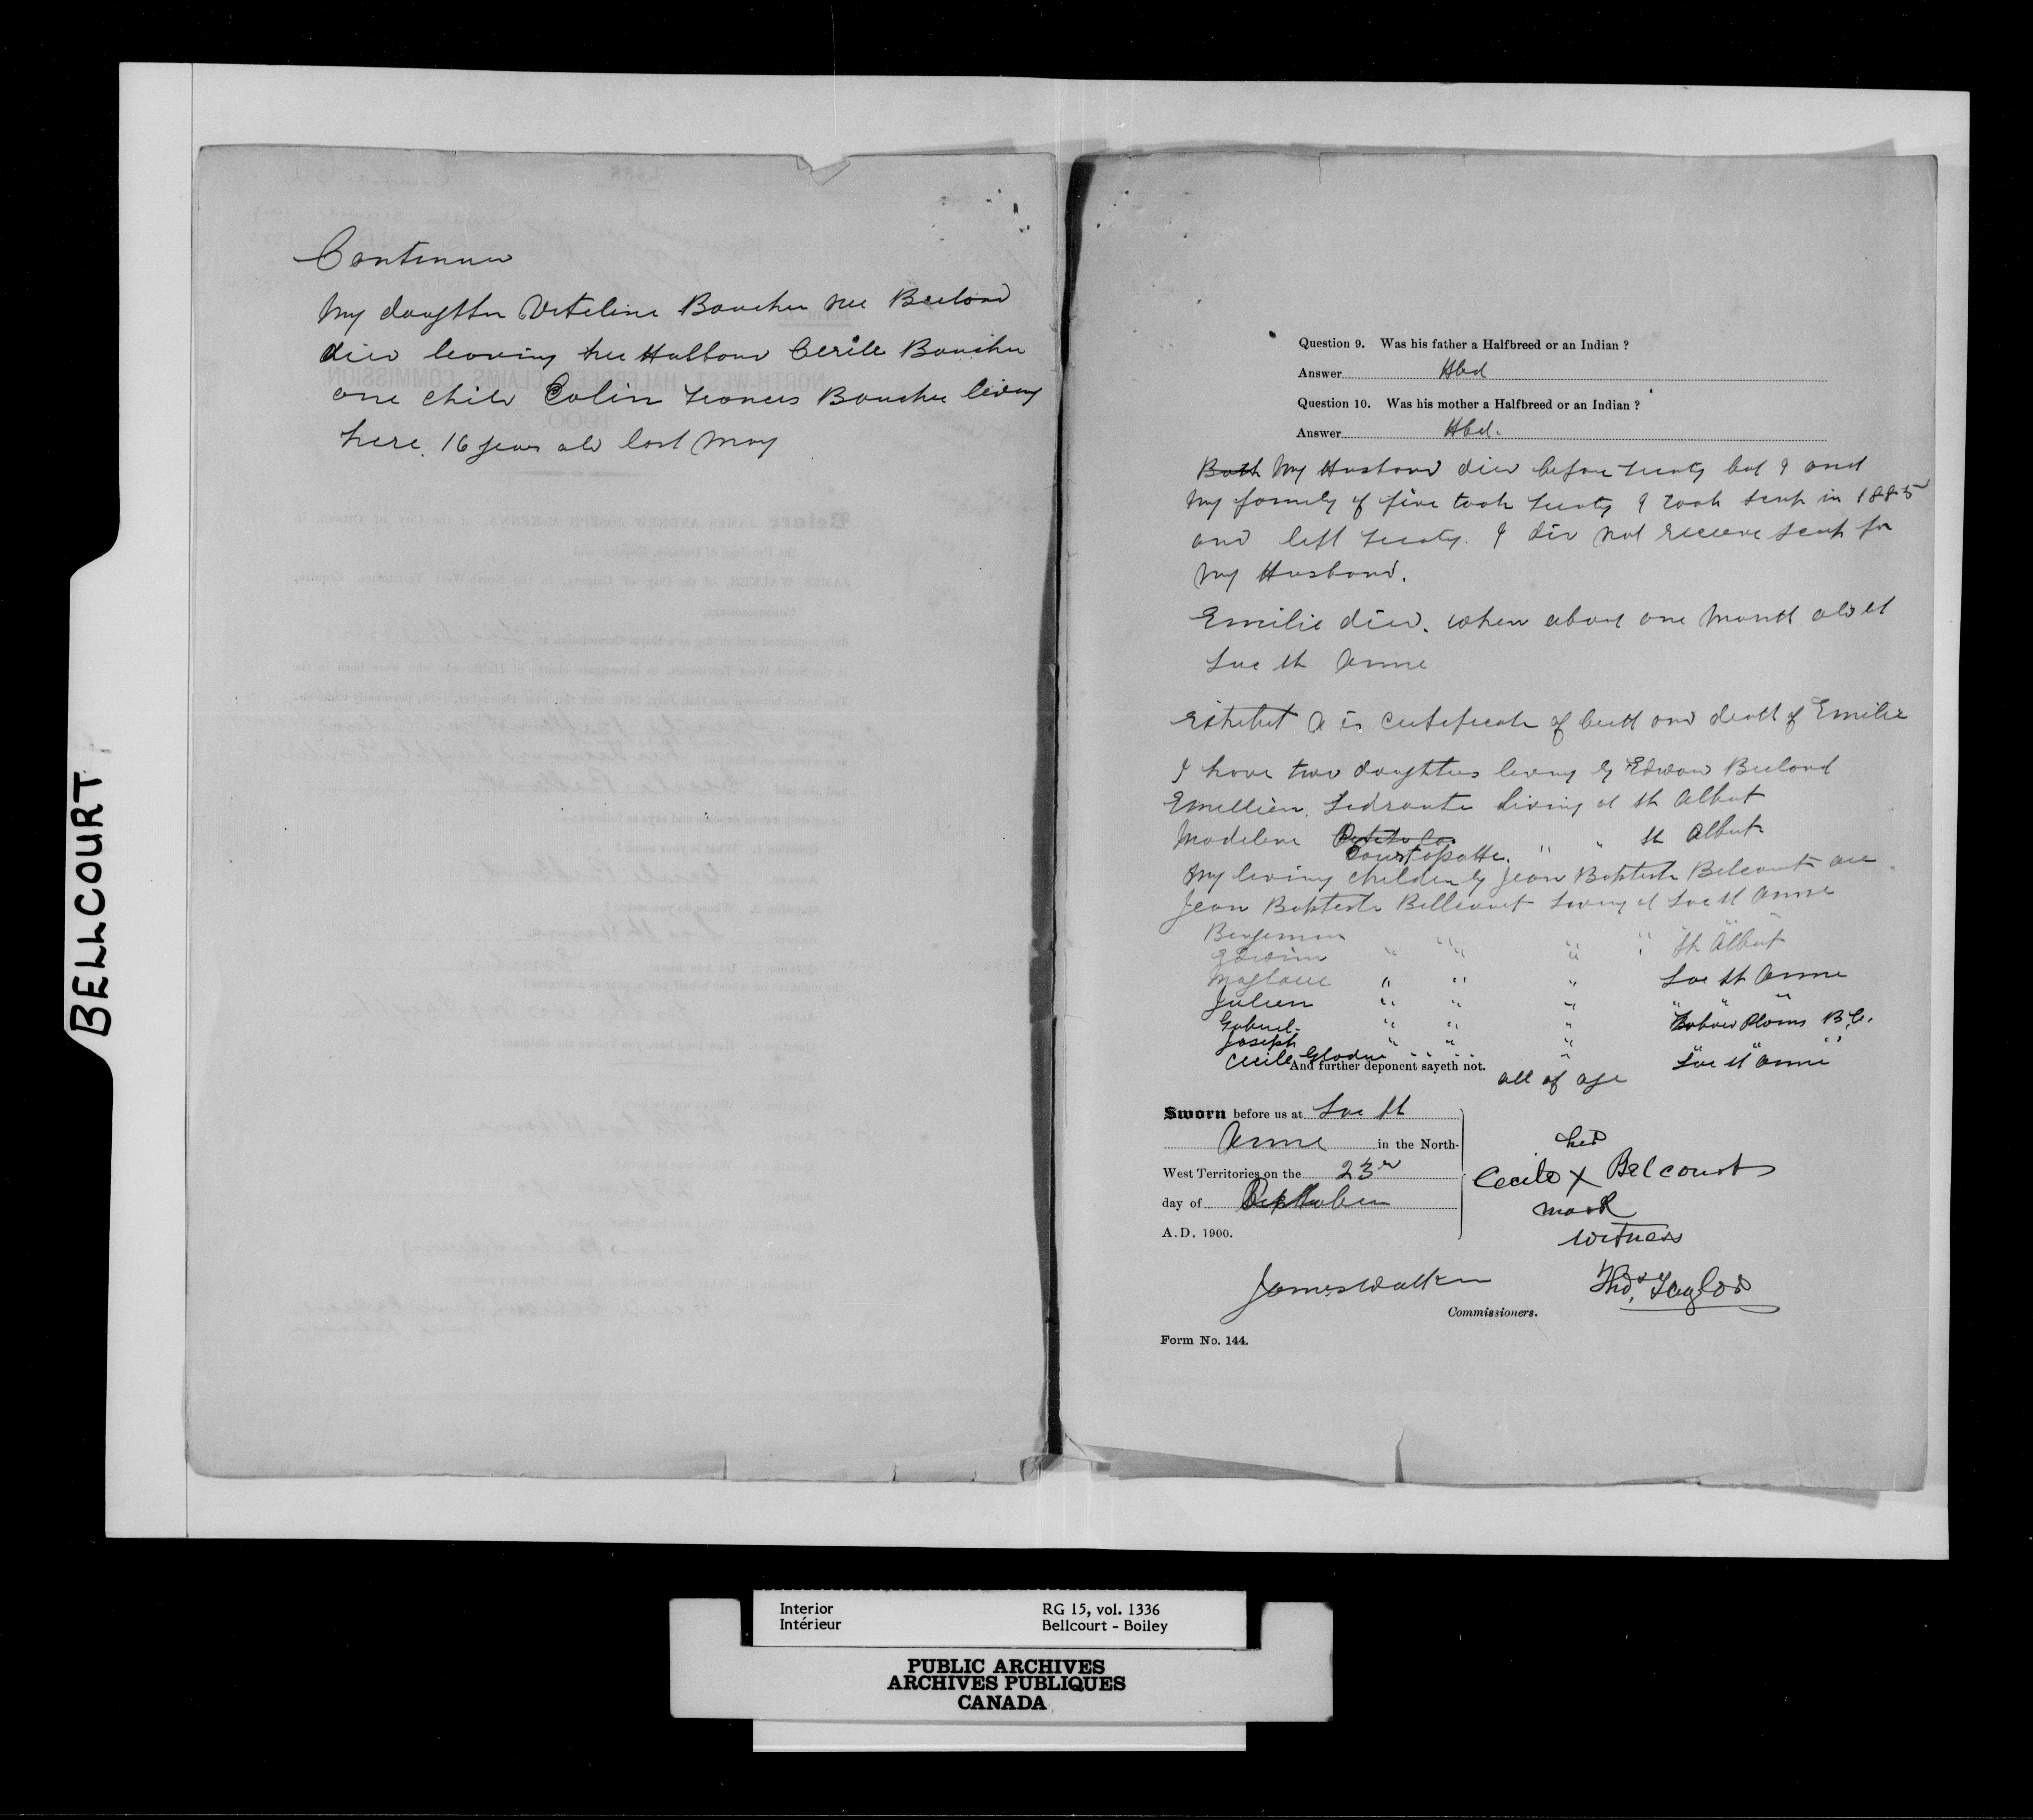 BELLCOURT
Continued
My daughter Veteline Boucher nee Breland
died leaving her Husband Cerile Boucher
one child Colin Francis Boucher living
here. 16 years old last May
Question 9. Was his father a Halfbreed or an Indian ?
Answer Hbd
Question 10. Was his mother a Halfbreed or an Indian ?
Answer Hbd.
Both My Husband died before treaty but I and
My family of five took treaty I took scrip in 1885
and left treaty. I did not receive scrip for
My Husband.
Emilie died. when about one Month old at
Lac St Anne
Exhibit A is certificate of birth and death of Emilie
I have two daughters living by Edward Breland
Emillien. living at St Albert
Madeline Courtopatte. " " St Albert
My living children by Jean Baptiste Belcourt are
Jean Baptiste Bellcourt Living at Lac St Anne
Benjamin " " " " St Albert
Edwin " " "
Magloire " " " Lac St Anne
Julien " " " " " "
Gabriel. " " " Plains B.C.
Joseph " " " " " "
Cecile Gladue " " " Lac St Anne
And further deponent sayeth not.
all of age
Sworn before us at Lac St
Anne in the North-
West Territories on the 23rd
day of September
A.D. 1900.
her
Cecile X Belcourt
mark
Witness
James Walker
Thos. Taylor
Commissioners.
Form No. 144.
Interior
Intérieur
RG 15, vol. 1336
Bellcourt - Boiley
PUBLIC ARCHIVES
ARCHIVES PUBLIQUES
CANADA